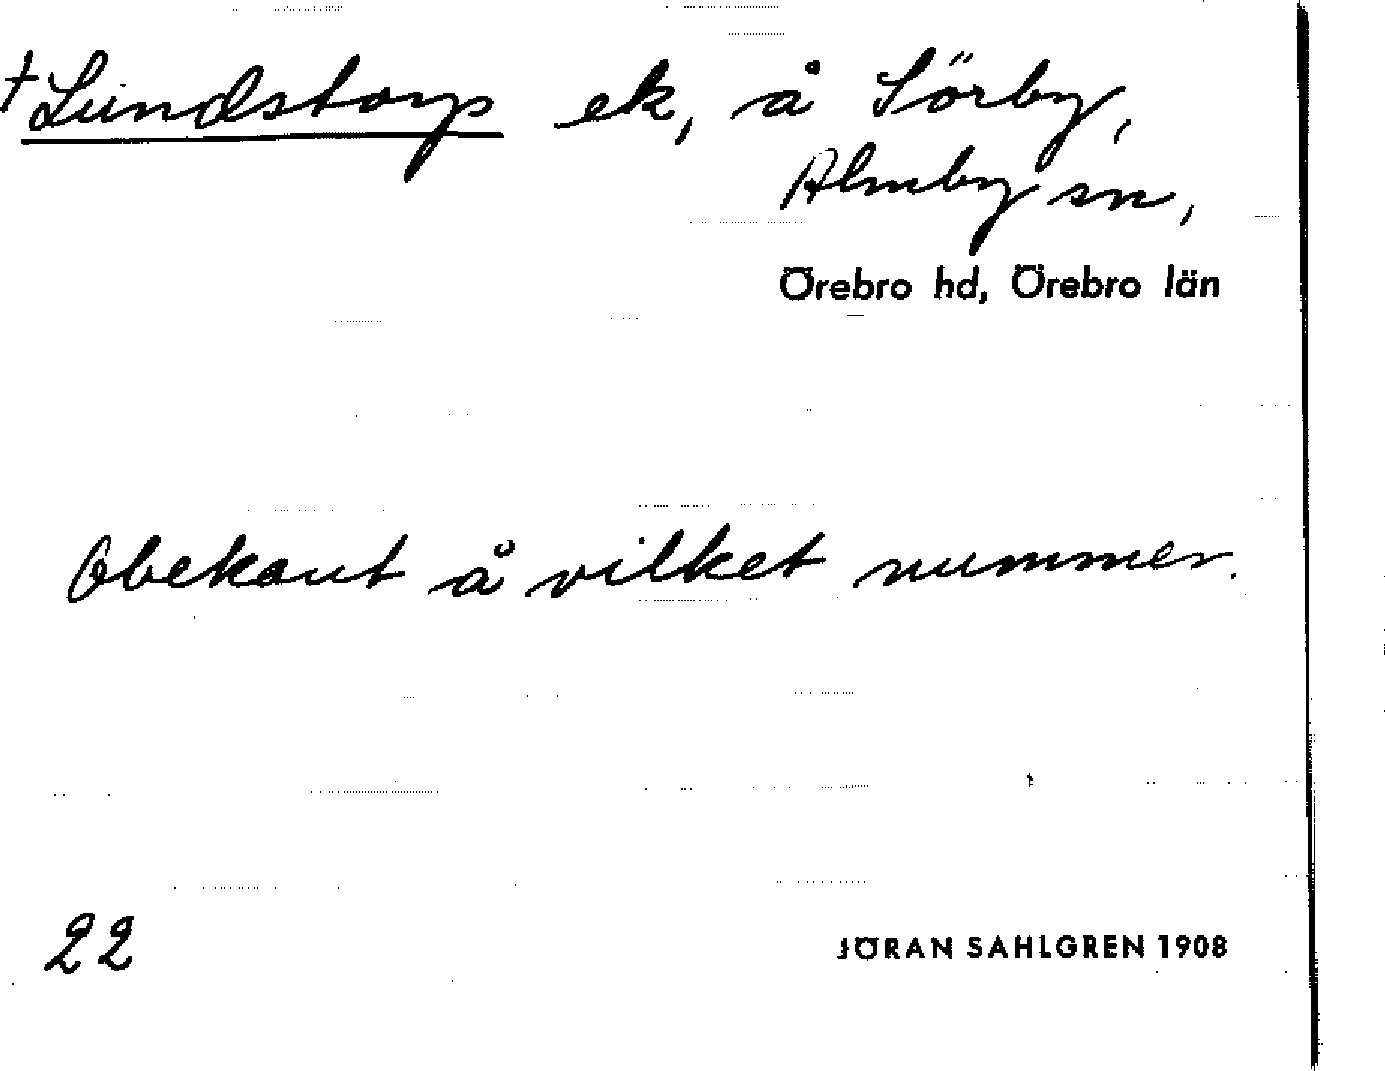 † Lundstorp ek, å Sörby,
Almby sn,
Örebro hd, Örebro län
Obekant å vilket nummer.
22
JÖRAN SAHLGREN 1908